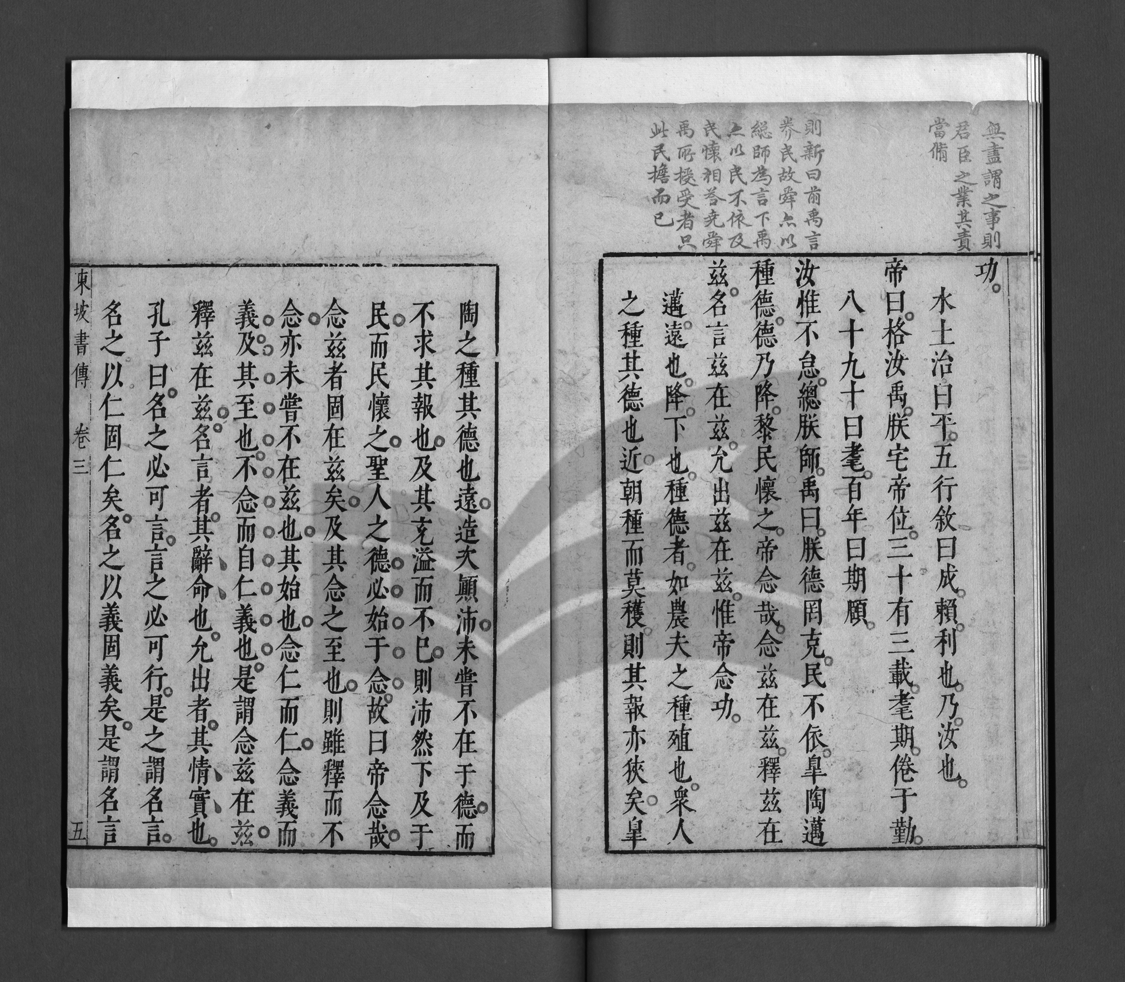 無盡謂之事則
君臣之業其責
當脩
則新曰前禹言
養民故舜亦以
總師爲言下禹
亦以民不依及
民懷相荅堯舜
禹所授受者只
此民擔而已
功。
水土治曰平。五行敘曰成。賴利也。乃汝也。
帝曰。格汝禹。朕宅帝位。三十有三載。耄期。倦于勤。
八十九十曰耄。百年曰期頤。
汝惟不怠。總朕師。禹曰。朕德罔克。民不依。皐陶邁
種德。德乃降。黎民懷之。帝念哉。念兹在兹。釋兹在
兹。名言兹在兹。允出兹在兹。惟帝念功。
邁遠也。降。下也。種德者。如農夫之種殖也。衆人
之種其德也近。朝種而莫穫。則其報亦狹矣。皐
陶之種其德也遠。造次顚沛。未嘗不在于德。而
不求其報也。及其充溢而不已。則沛然下及于
民。而民懷之。聖人之德。必始于念。故曰帝念哉。
念兹者固在兹矣。及其念之至也。則雖釋而不
念。亦未嘗不在兹也。其始也。念仁而仁。念義而
義。及其至也。不念而自仁義也。是謂念兹在兹
釋兹在兹。名言者。其辭命也。允出者。其情實也。
孔子曰。名之必可言。言之必可行。是之謂名言。
名之以仁固仁矣。名之以義固義矣。是謂名言
東坡書傳 卷三 五